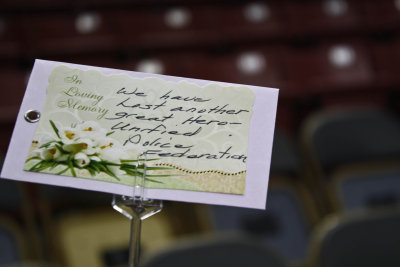 In
Loving
Memory
We have
Last another
great Hero-
Unified
Police
Federation